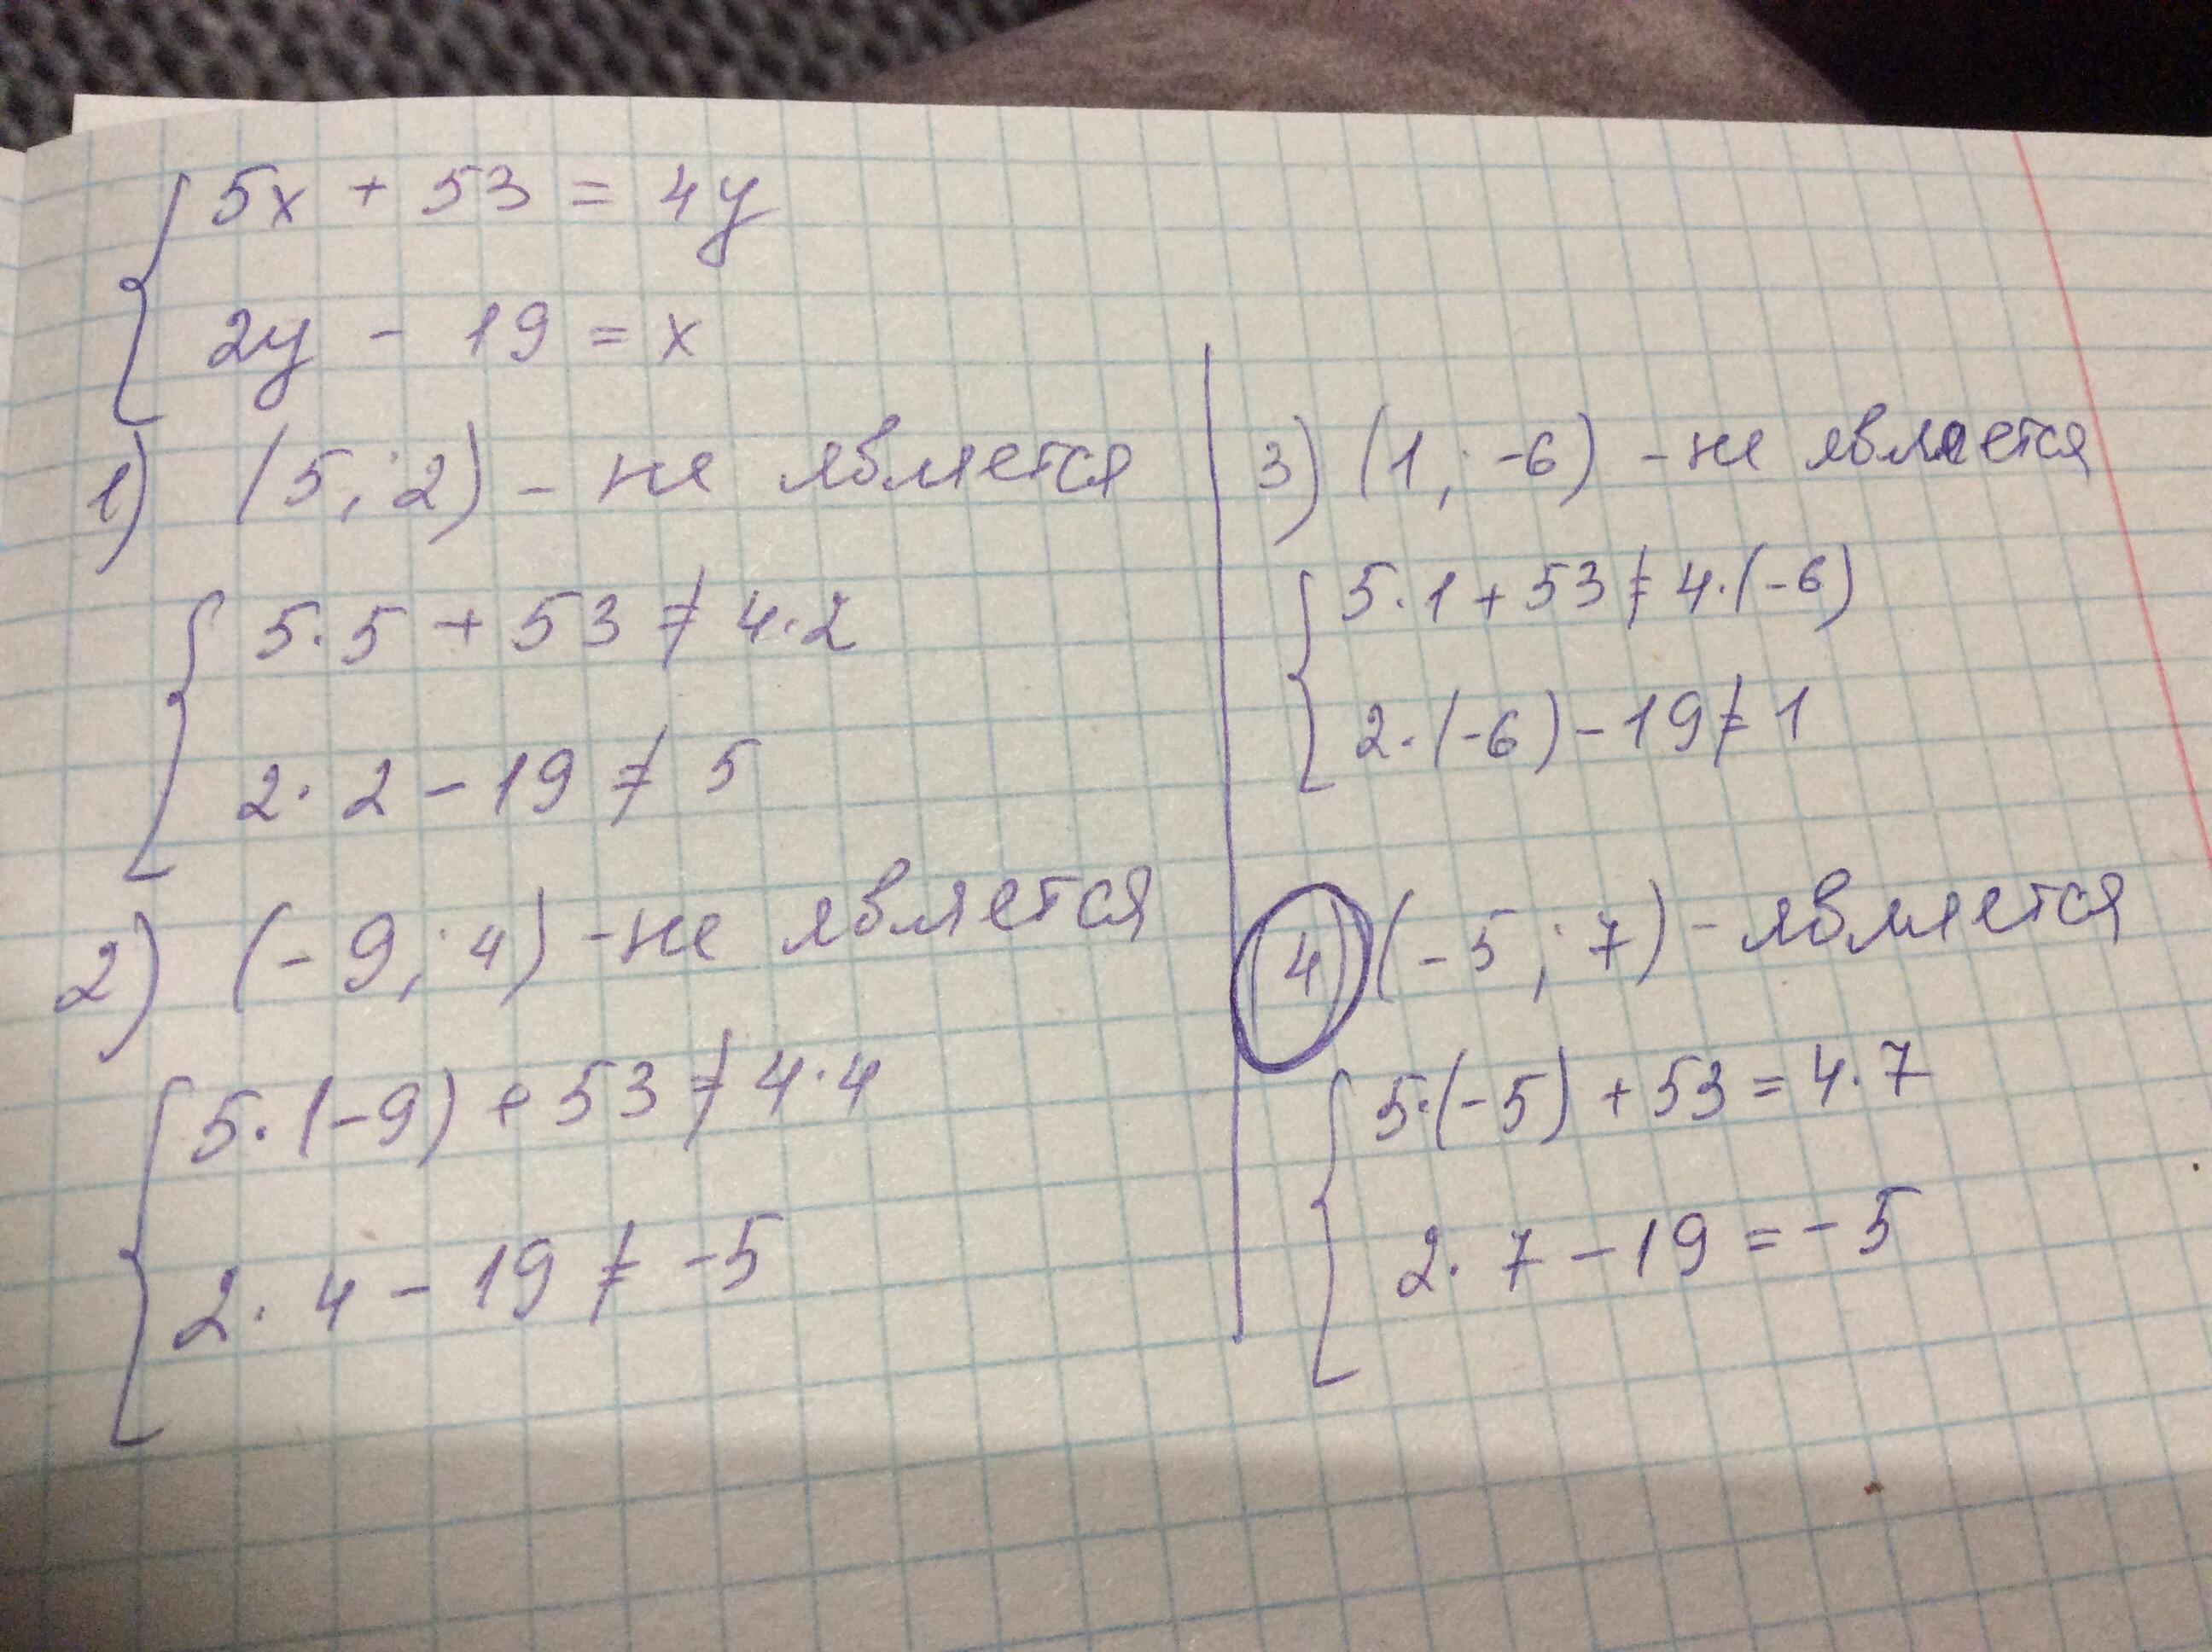 5x + 53 = 4y
2y - 19 = x
1) (5; 2) - не является
5·5 + 53 ≠ 4·2
2·2 - 19 ≠ 5
2) (-9; 4) - не является
5·(-9) + 53 ≠ 4·4
2·4 - 19 ≠ -5
3) (1; -6) - не является
5·1 + 53 ≠ 4·(-6)
2·(-6) - 19 ≠ 1
4) (-5; 7) - является
5·(-5) + 53 = 4·7
2·7 - 19 = -5